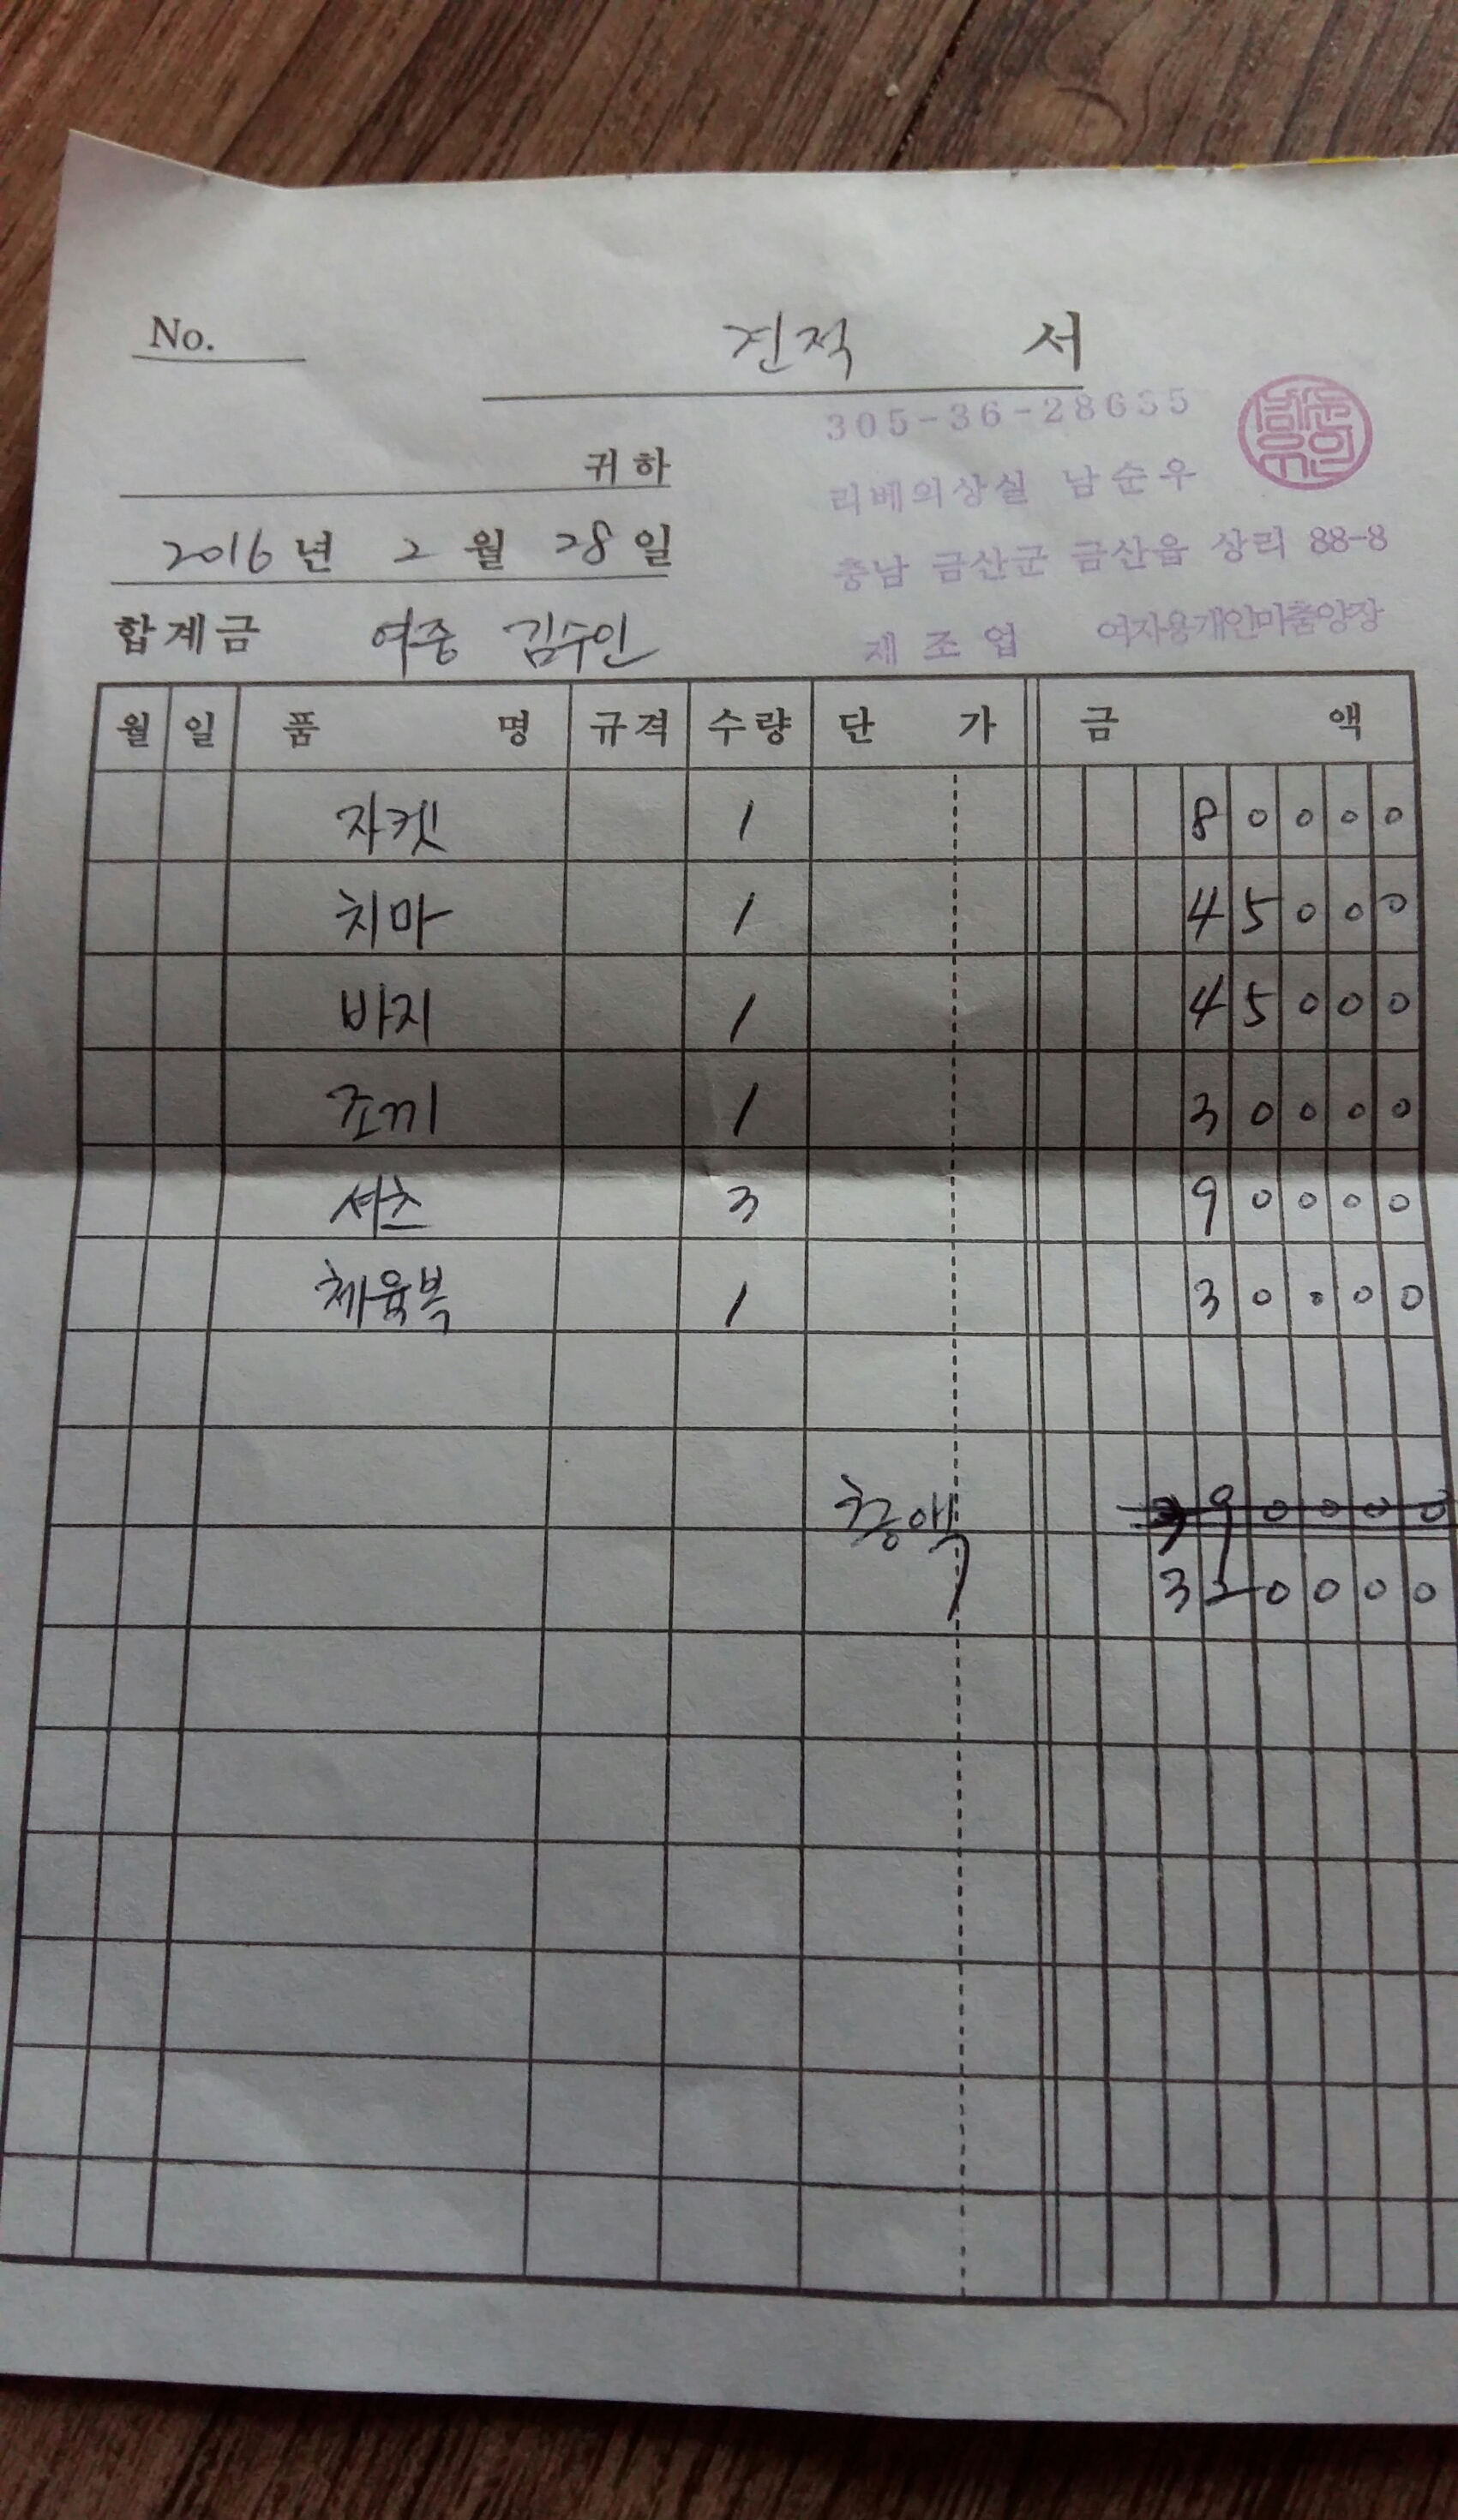 No. 견적 서
305-36-28635
귀하
리베의상실 남순우
2016년 2월 28일
충남 금산군 금산읍 상리 88-8
합계금 여중 김수인
제조업 여자용개인마춤양장
월 일 품명 규격 수량 단가 금액
자켓 1 80000
치마 1 45000
바지 1 45000
조끼 1 30000
셔츠 3 90000
체육복 1 30000
총액
320000